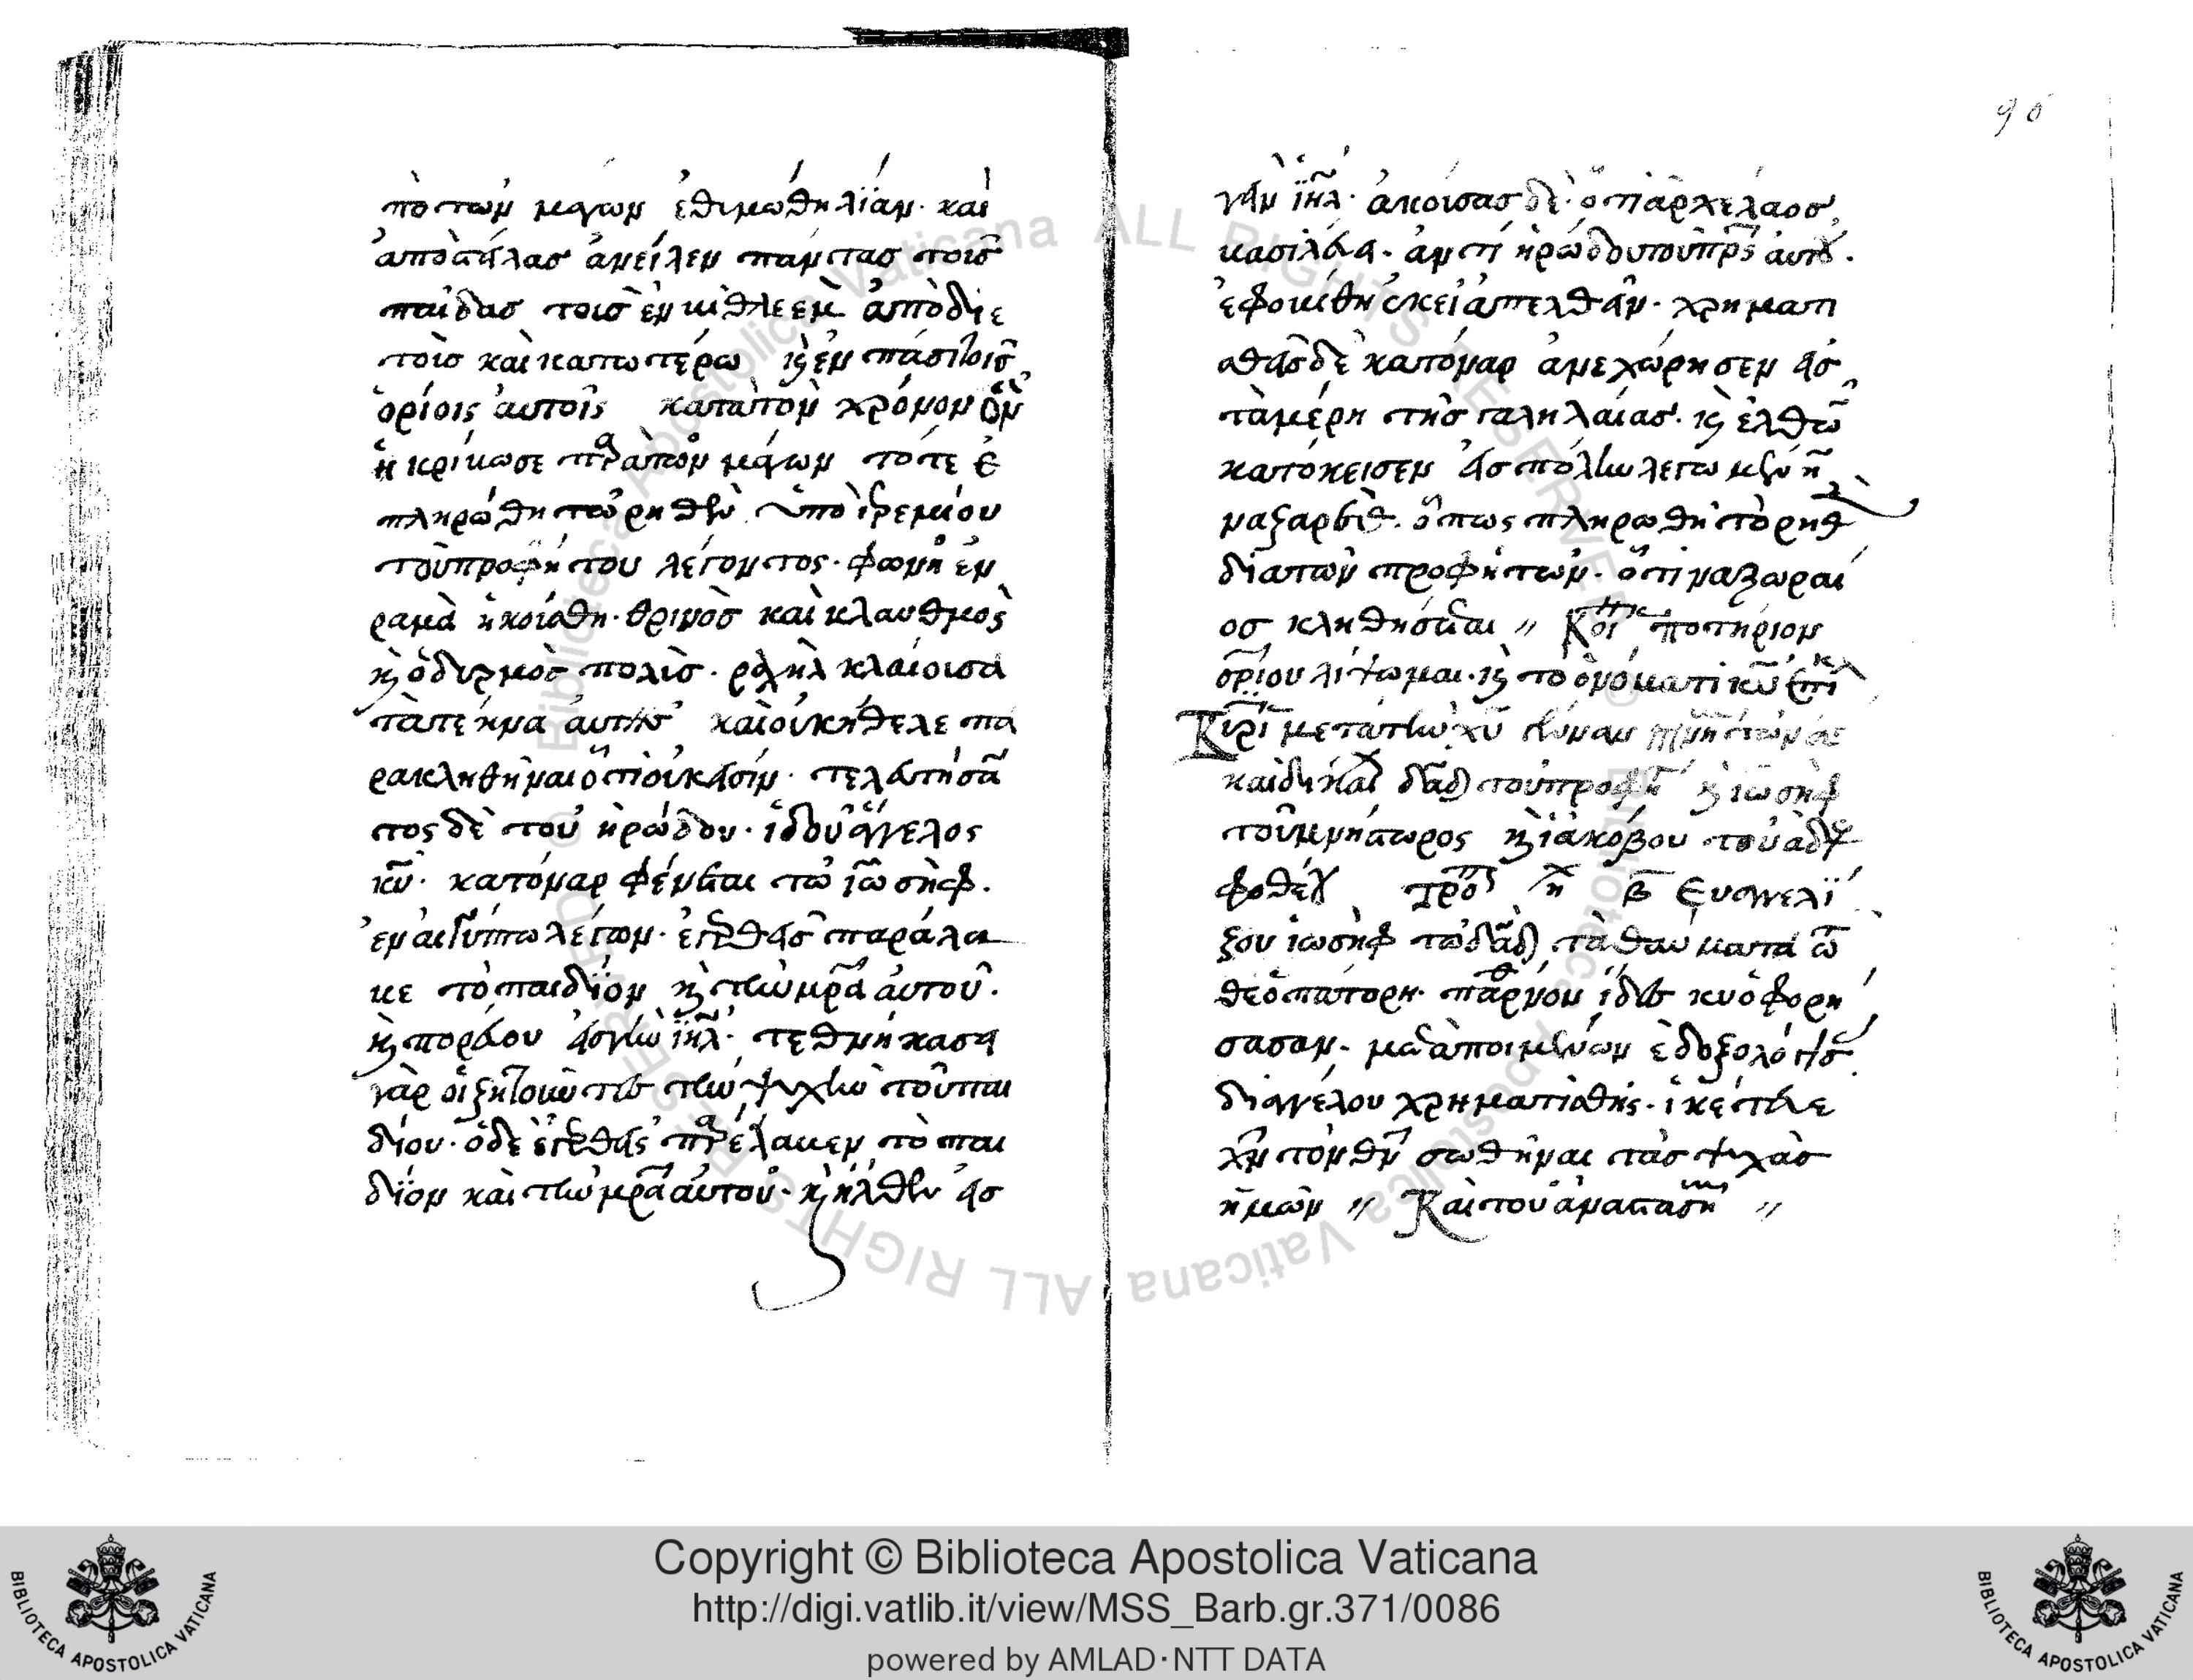 πὸ τῶν μάγων ἐθιμώθη λΐαν· καὶ
ἀποστείλας ἀνείλεν πάντας τοὶσ
παίδασ τοισ ἐν βιθλεὲμ ἀπὸ διε
τοὶσ καὶ κατωτέρω κ ἐν πάσι τοισ
ὁρίοις αὐτοῖς κατὰ τὸν χρόνον ὃν
ἠκρίβωσε πρα τῶν μάγων τότε ἐ
πληρώθη τὼ ρηθὲν ὑπὸ ἱερεμίου
τοῦ προφήτου λέγοντος· φωνὴ ἐν
ραμὰ ἠκοίσθη· θρινὸσ καὶ κλαυθμὸς
κ ὀδυρμὸσ πολὶσ· ραχὴλ κλαίοισα
τὰ τέκηνα αὐτῆσ καὶ οὐκ ἤθελε πα
ρακληθῆναι ὅτι οὐκ εἰσίν· τελευτήσα
τος δὲ τοῦ ἡρώδου· ἰδοὺ ἄγγελος
κυ· κατόναρ φένεται τὼ ἰωσὴφ·
ἐν αιγύπτω λέγων· ἐγερθεὶσ παράλα
βε τὸ παιδΐον κ τὴν μρα αὐτοῦ·
κ πορεύου εἰσ γὴν ϊηλ· τεθνήκασι
γὰρ οἱ ζητοῦντες τὴν ψυχὴν τοῦ παι
δίου· ὁ δὲ ἐγερθεὶς πρέλαβεν τὸ παι
δΐον καὶ τὴν μρα αὐτοῦ· κ ἦλθεν εἰσ
90
γὴν ϊηλ· ἀκούσας δὲ· ὅτι ἀρχέλαοσ
βασιλεύει· ἀντὶ ἡρώδου τοῦ πρς αὐτοῦ·
ἐφοβίθη ἐκεῖ ἀπελθεῖν· χρηματι
σθεὶσ δὲ κατόναρ ἀνεχώρησεν εἰσ
τὰ μέρη τῆσ γαληλαίασ· κ ἐλθὼ
κατόκεισεν εἰσ πόλην λεγωμένη
ναζαρέθ· ὅπως πληρωθῆ τὸ ρηθ
δϊα τῶν προφήτων· ὅτι ναζωραί
οσ κληθήσεται // Κοι ποτήριον
σρίου λίψωμαι· κ το ὀνόματι κυ ἐπι
Κυρι μετὰ τὴν χυ
καὶ δικαι δαδ τοῦ προφη κ ἰωσὴφ
τοῦ μνήστωρος κ ἰακόβου τοῦ ἀδε
φοθέου Τρο η β Εὐαγγελΐ
ζου ἰωσὴφ τῶ δαδ τὰ θαύματα ω
θεοπάτορη· παρθνον ἰδες κυοφορη
σασαν· μετὰ ποιμένων ἐδοξολόγισ
δϊ αγγέλου χρηματισθής· ἱκέτευε
χν τὸν θν σωθῆναι τὰς ψυχὰσ
ἡμῶν // Καὶ του ἀναστασιμ //
Copyright © Biblioteca Apostolica Vaticana
http://digi.vatlib.it/view/MSS_Barb.gr.371/0086
powered by AMLAD·NTT DATA